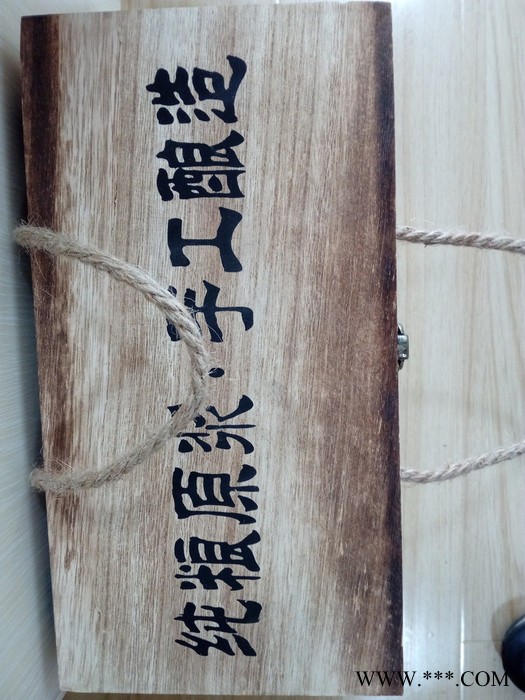 纯粮原浆·手工酿造
WWW.***.COM